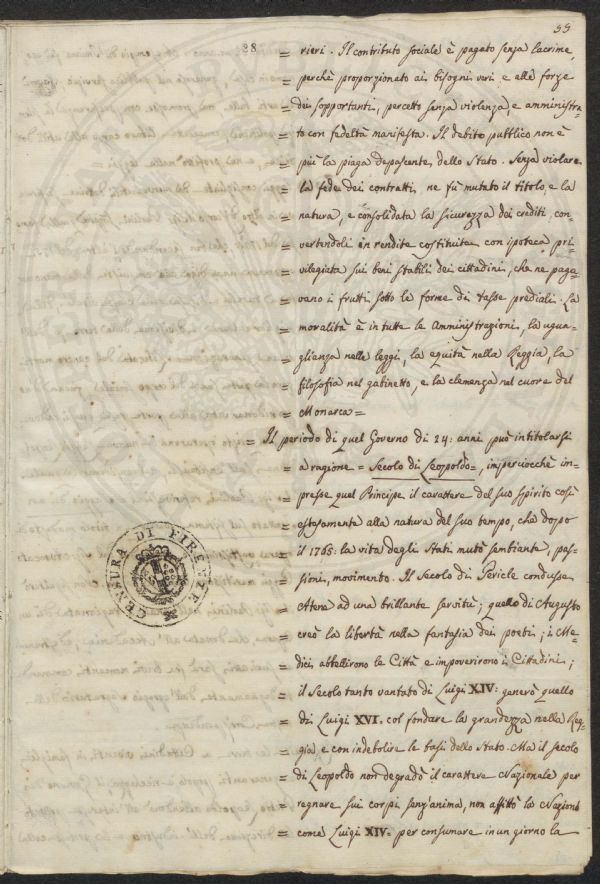 59
28
= rieri. Il contributo sociale è pagato senza lacrime,
= perchè proporzionato ai bisogni veri e alle forze
= dei sopportanti, percetto senza violenza, e amministra-
= to con fedeltà manifesta. Il debito pubblico non è
= più la piaga depascente dello Stato. Senza violare
= la fede dei contratti, ne fù mutato il titolo, e la
= natura, e consolidata la sicurezza dei crediti, con-
= vertendoli in rendite costituite con ipoteca pri-
= vilegiata sui beni stabili dei cittadini, che ne paga-
= vano i frutti sotto le forme di tasse prediali. La
= moralità è in tutte le Amministrazioni, la ugua-
= glianza nelle leggi, la equità nella Reggia, la
= filosofia nel gabinetto, e la clemenza nel cuore del
= Monarca =
= Il periodo di quel Governo di 24: anni può intitolarsi
= a ragione = Secolo di Leopoldo =, imperciocchè im-
= presse quel Principe il carattere del suo spirito così
= estesamente alla natura del suo tempo, che dopo
= il 1765: la vita degli Stati mutò sembiante, pas-
= sioni, movimento. Il Secolo di Pericle condusse
= Atene ad una brillante servitù; quello di Augusto
= creò la libertà nella fantasia dei poeti; i Me-
= dici abbellirono le Città e impoverirono i Cittadini;
= il Secolo tanto vantato di Luigi XIV: generò quello
= di Luigi XVI. col fondare la grandezza nella Reg-
= gia, e con indebolire le basi dello Stato. Ma il secolo
= di Leopoldo non degradò il carattere Nazionale per
= regnare sui corpi senz'anima, non affittò la Nazione
= come Luigi XIV= per consumare in un giorno la
CENSURA DI FIRENZE